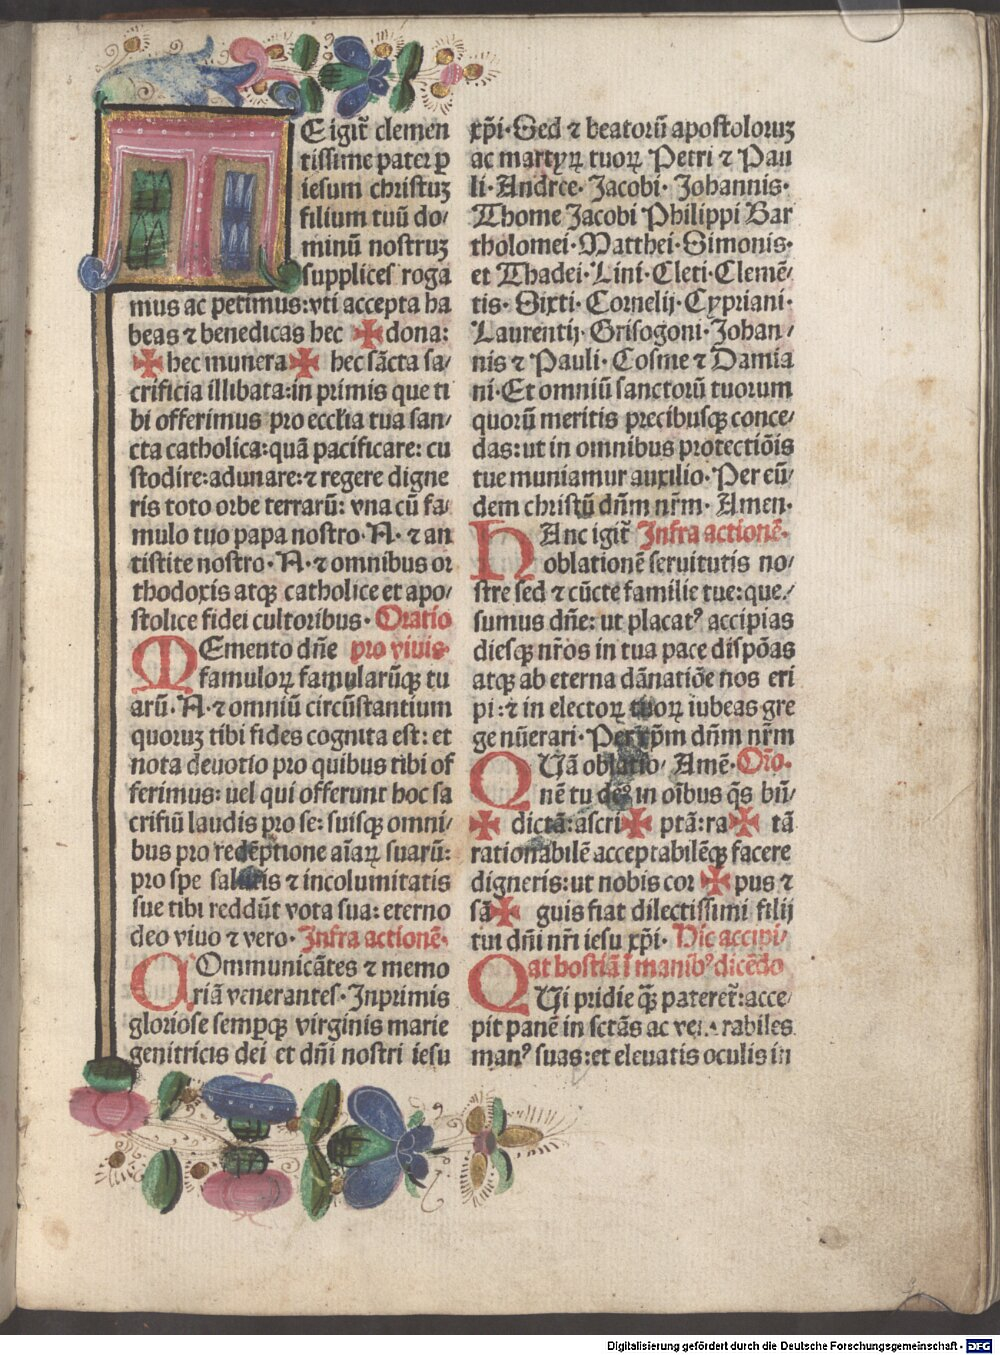 TE igit᷑ clemen
tissime pater ꝑ
iesum christuꝫ
filium tuū do/
minū nostruꝫ
supplices roga
mus ac petimus:vti accepta ha
beas ⁊ benedicas hec ✠ dona:
✠ hec munera ✠ hec sācta sa/
crificia illibata:in primis que ti
bi offerimus pro eccl̄ia tua san/
cta catholica:quā pacificare: cu
stodire:adunare:⁊ regere digne
ris toto orbe terrarū: vna cū fa/
mulo tuo papa nostro·N· ⁊ an
tistite nostro·N·⁊ omnibus or
thodoxis atqꝫ catholice et apo/
stolice fidei cultoribus· Oratio
MEmento dn̄e pro viuis·
famuloꝝ famularūqꝫ tu
arū·N·⁊ omniū circūstantium
quoruꝫ tibi fides cognita est: et
nota deuotio pro quibus tibi of
ferimus: uel qui offerunt hoc sa
crifiū laudis pro se: suisqꝫ omni/
bus pro redēptione aīaꝝ suarū:
pro spe salutis ⁊ incolumitatis
sue tibi reddūt vota sua: eterno
deo viuo ⁊ vero· Infra actionē·
COmmunicātes ⁊ memo
riā venerantes·Inprimis
gloriose sempqꝫ virginis marie
genitricis dei et dn̄i nostri iesu
xp̄i·Sed ⁊ beatorū apostoloruꝫ
ac martyꝝ tuoꝝ Petri ⁊ Pau
li·Andree·Jacobi·Johannis·
Thome Jacobi Philippi Bar
tholomei·Matthei·Simonis·
et Thadei·Lini·Cleti·Clemē/
tis·Sixti·Cornelij·Cypriani·
Laurentij·Grisogoni·Johan/
nis ⁊ Pauli·Cosme ⁊ Damia
ni·Et omniū sanctorū tuorum
quorū meritis precibusqꝫ conce/
das:ut in omnibus protectiōis
tue muniamur auxilio·Per eū/
dem christū dn̄m nr̄m·Amen·
HAnc igit᷑ Infra actionē·
oblationē seruitutis no/
stre sed ⁊ cūcte familie tue:que/
sumus dn̄e: ut placatꝰ accipias
diesqꝫ nr̄os in tua pace dispōas
atqꝫ ab eterna dānatiōe nos eri
pi:⁊ in electoꝝ tuoꝝ iubeas gre
ge nūerari·Per xp̄m dn̄m nr̄m
QUā oblatio/ Amē·Orō·
nē tu deꝰ in oībus q̄s bn̄/
✠ dictā:ascri ✠ ptā:ra ✠ tā
rationabilē acceptabilēqꝫ facere
digneris:ut nobis cor ✠ pus ⁊
sā ✠ guis fiat dilectissimi filij
tui dn̄i nr̄i iesu xp̄i· Hic accipi/
at hostiā ī manibꝰ dicēdo
QUi pridie qꝫ pateret᷑:acce/
pit panē in sctās ac ve rabiles
manꝰ suas:et eleuatis oculis in
Digitalisierung gefördert durch die Deutsche Forschungsgemeinschaft - DFG